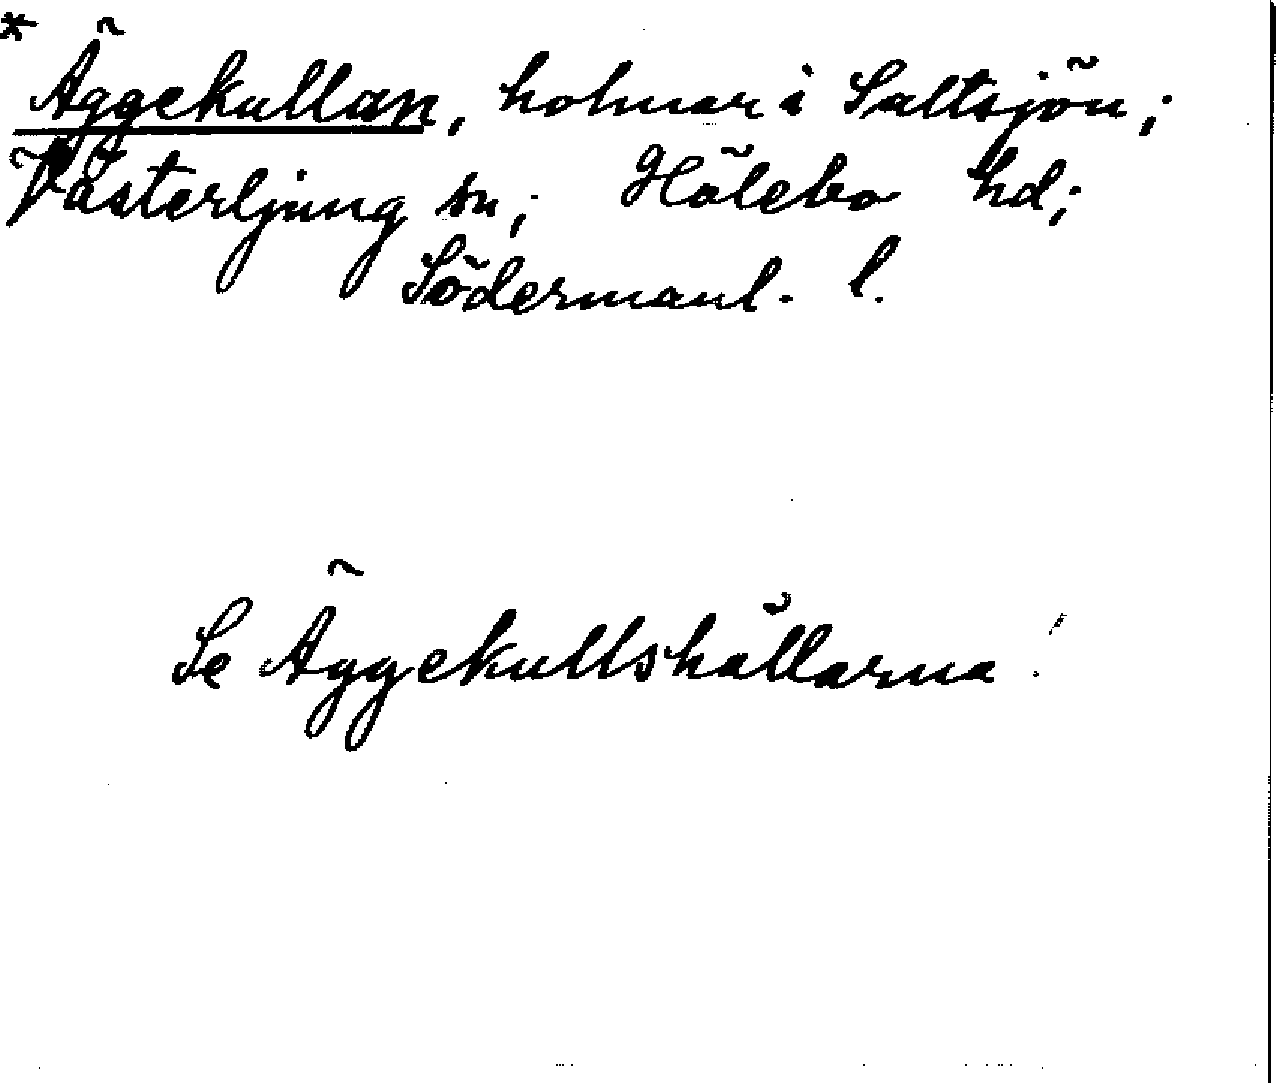 * Äggekullan, holmar i Saltsjön;
Västerljung sn; Hölebo hd;
Södermanl. l.
Se Äggekullshällarna!